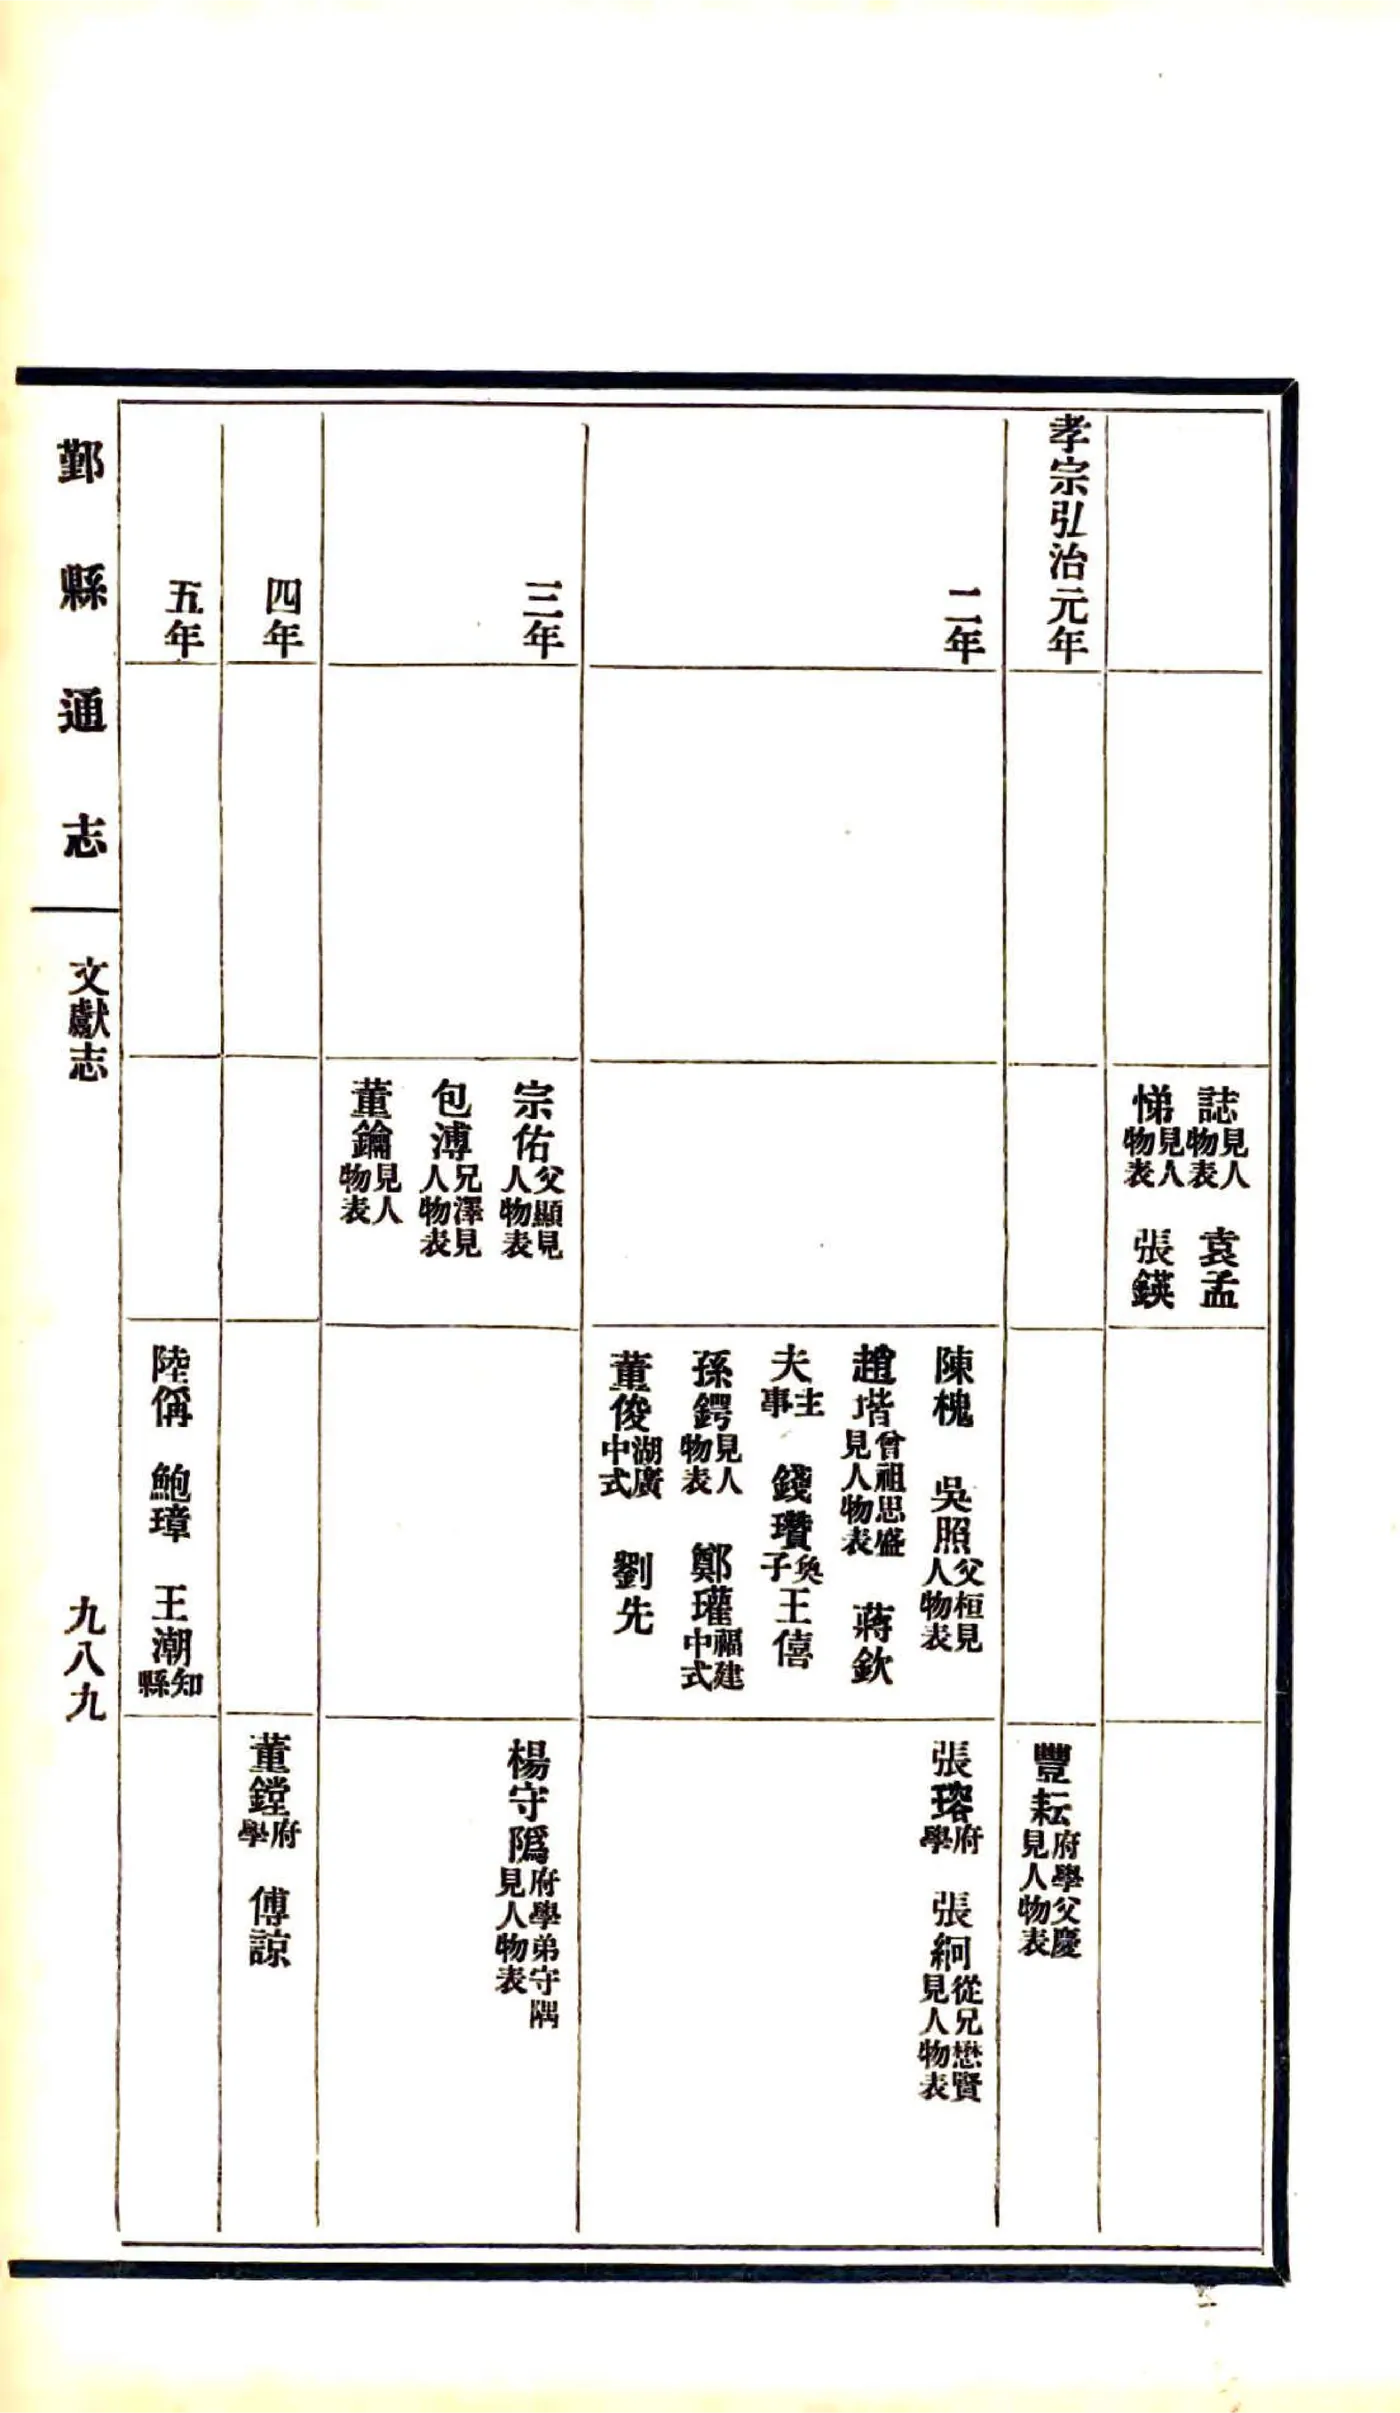 誌見人物表　袁孟
悌見人物表　張鍈
孝宗弘治元年
豐耘府學父慶見人物表
二年
陳槐　吳照父桓見人物表
趙堦曾祖思盛見人物表　蔣欽
夫主事　錢瓚奐子王僖
孫鍔見人物表　鄭瓘福建中式
董俊湖廣中式　劉先
張瑢府學　張絅從兄懋賢見人物表
三年
宗佑父顯見人物表
包溥兄澤見人物表
董鑰見人物表
楊守隝府學弟守隅見人物表
四年
董鏜府學　傅諒
五年
陸偁　鮑璋　王潮知縣
鄞縣通志
文獻志
九八九